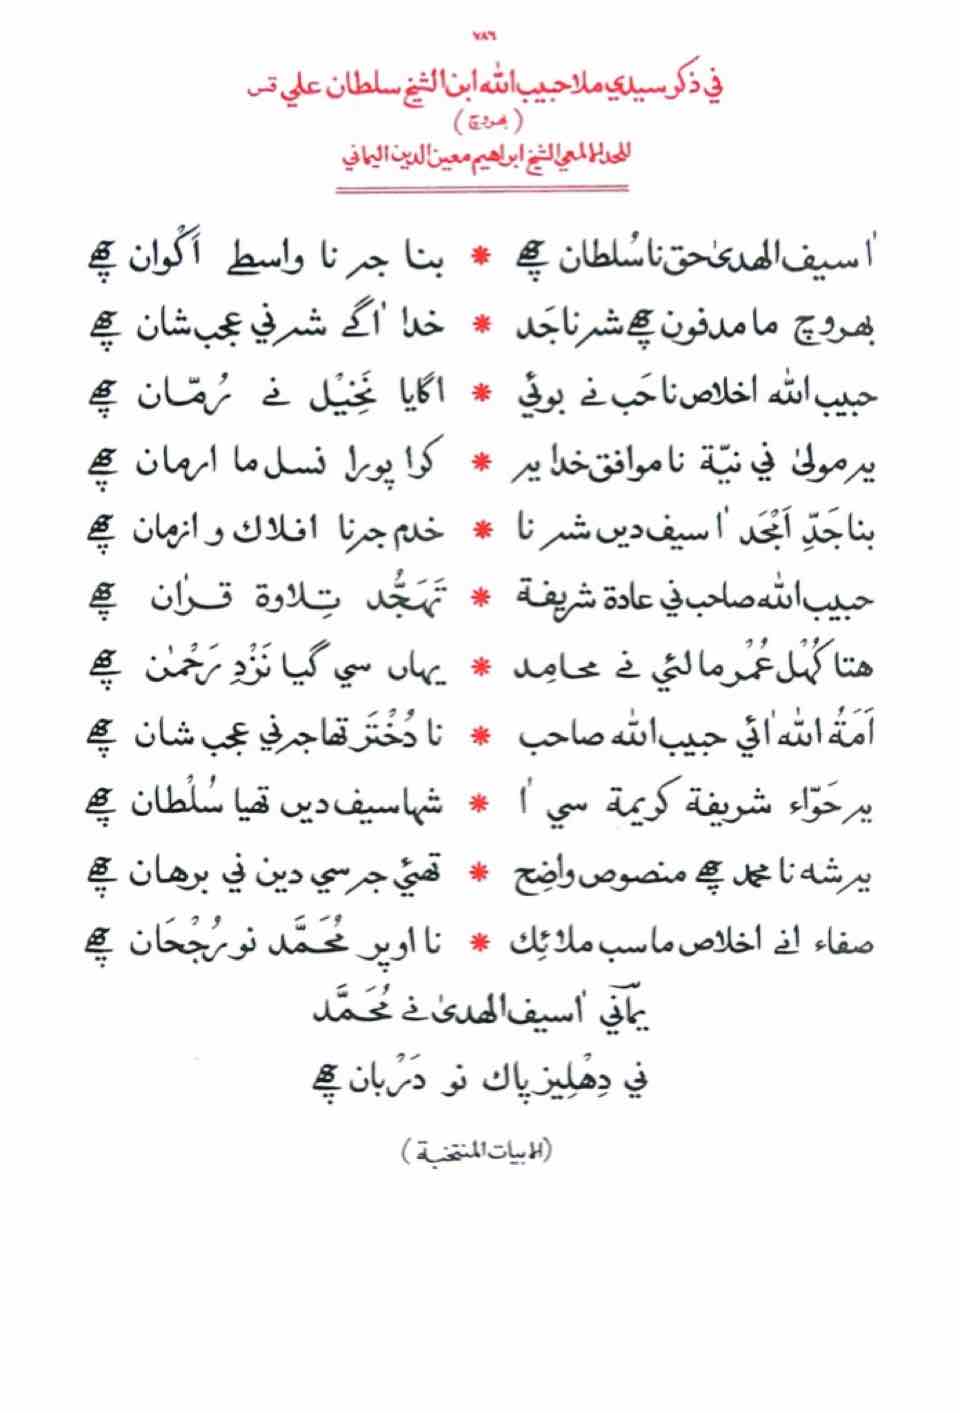 ٧٨٦
في ذكر سيدي ملا حبيب الله ابن الشيخ سلطان علي قس
(بهروچ)
للحد الالمعي الشيخ ابراهيم معين الدين اليماني
اٰ سيف الهدىٰ حق نا سُلطان چھے * بنا جہ نا واسطے اَكْوان چھے
بهروچ ما مدفون چھے شہ نا جَد * خدا اٰگے شہ ني عجب شان چھے
حبيب الله اخلاص نا حَب نے بوئي * اگايا نَخِيْل نے رُمّان چھے
يہ مولىٰ ني نيّة نا موافق خدا يہ * كرا پورا نسل ما ارمان چھے
بنا جَدِّ اَمْجَد اٰ سيف ديں شہ نا * خدم جہ نا افلاك و ازمان چھے
حبيب الله صاحب ني عادة شريفة * تَهَجُّد تِلاوة قراٰن چھے
هتا كَهْل عُمْر ما لئي نے محامِد * يهاں سي گيا نَزْدِ رَحْمٰن چھے
اَمَةُ الله اٰئي حبيب الله صاحب * نا دُخْتَر تھا جہ ني عجب شان چھے
يہ حَوّاء شريفة كريمة سي اٰ * شها سيف ديں تھيا سُلْطان چھے
يہ شه نا محمد چھے منصوص واضِح * تھئي جہ سي دين ني برهان چھے
صفاء انے اخلاص ما سب ملائِك * نا اوپر مُحَمَّد نو رُجْحَان چھے
يمٓاني اٰ سيف الهدىٰ نے مُحَمَّد
ني دِهْلِيز پاك نو دَرْبان چھے
(الابيات المنتخبة)